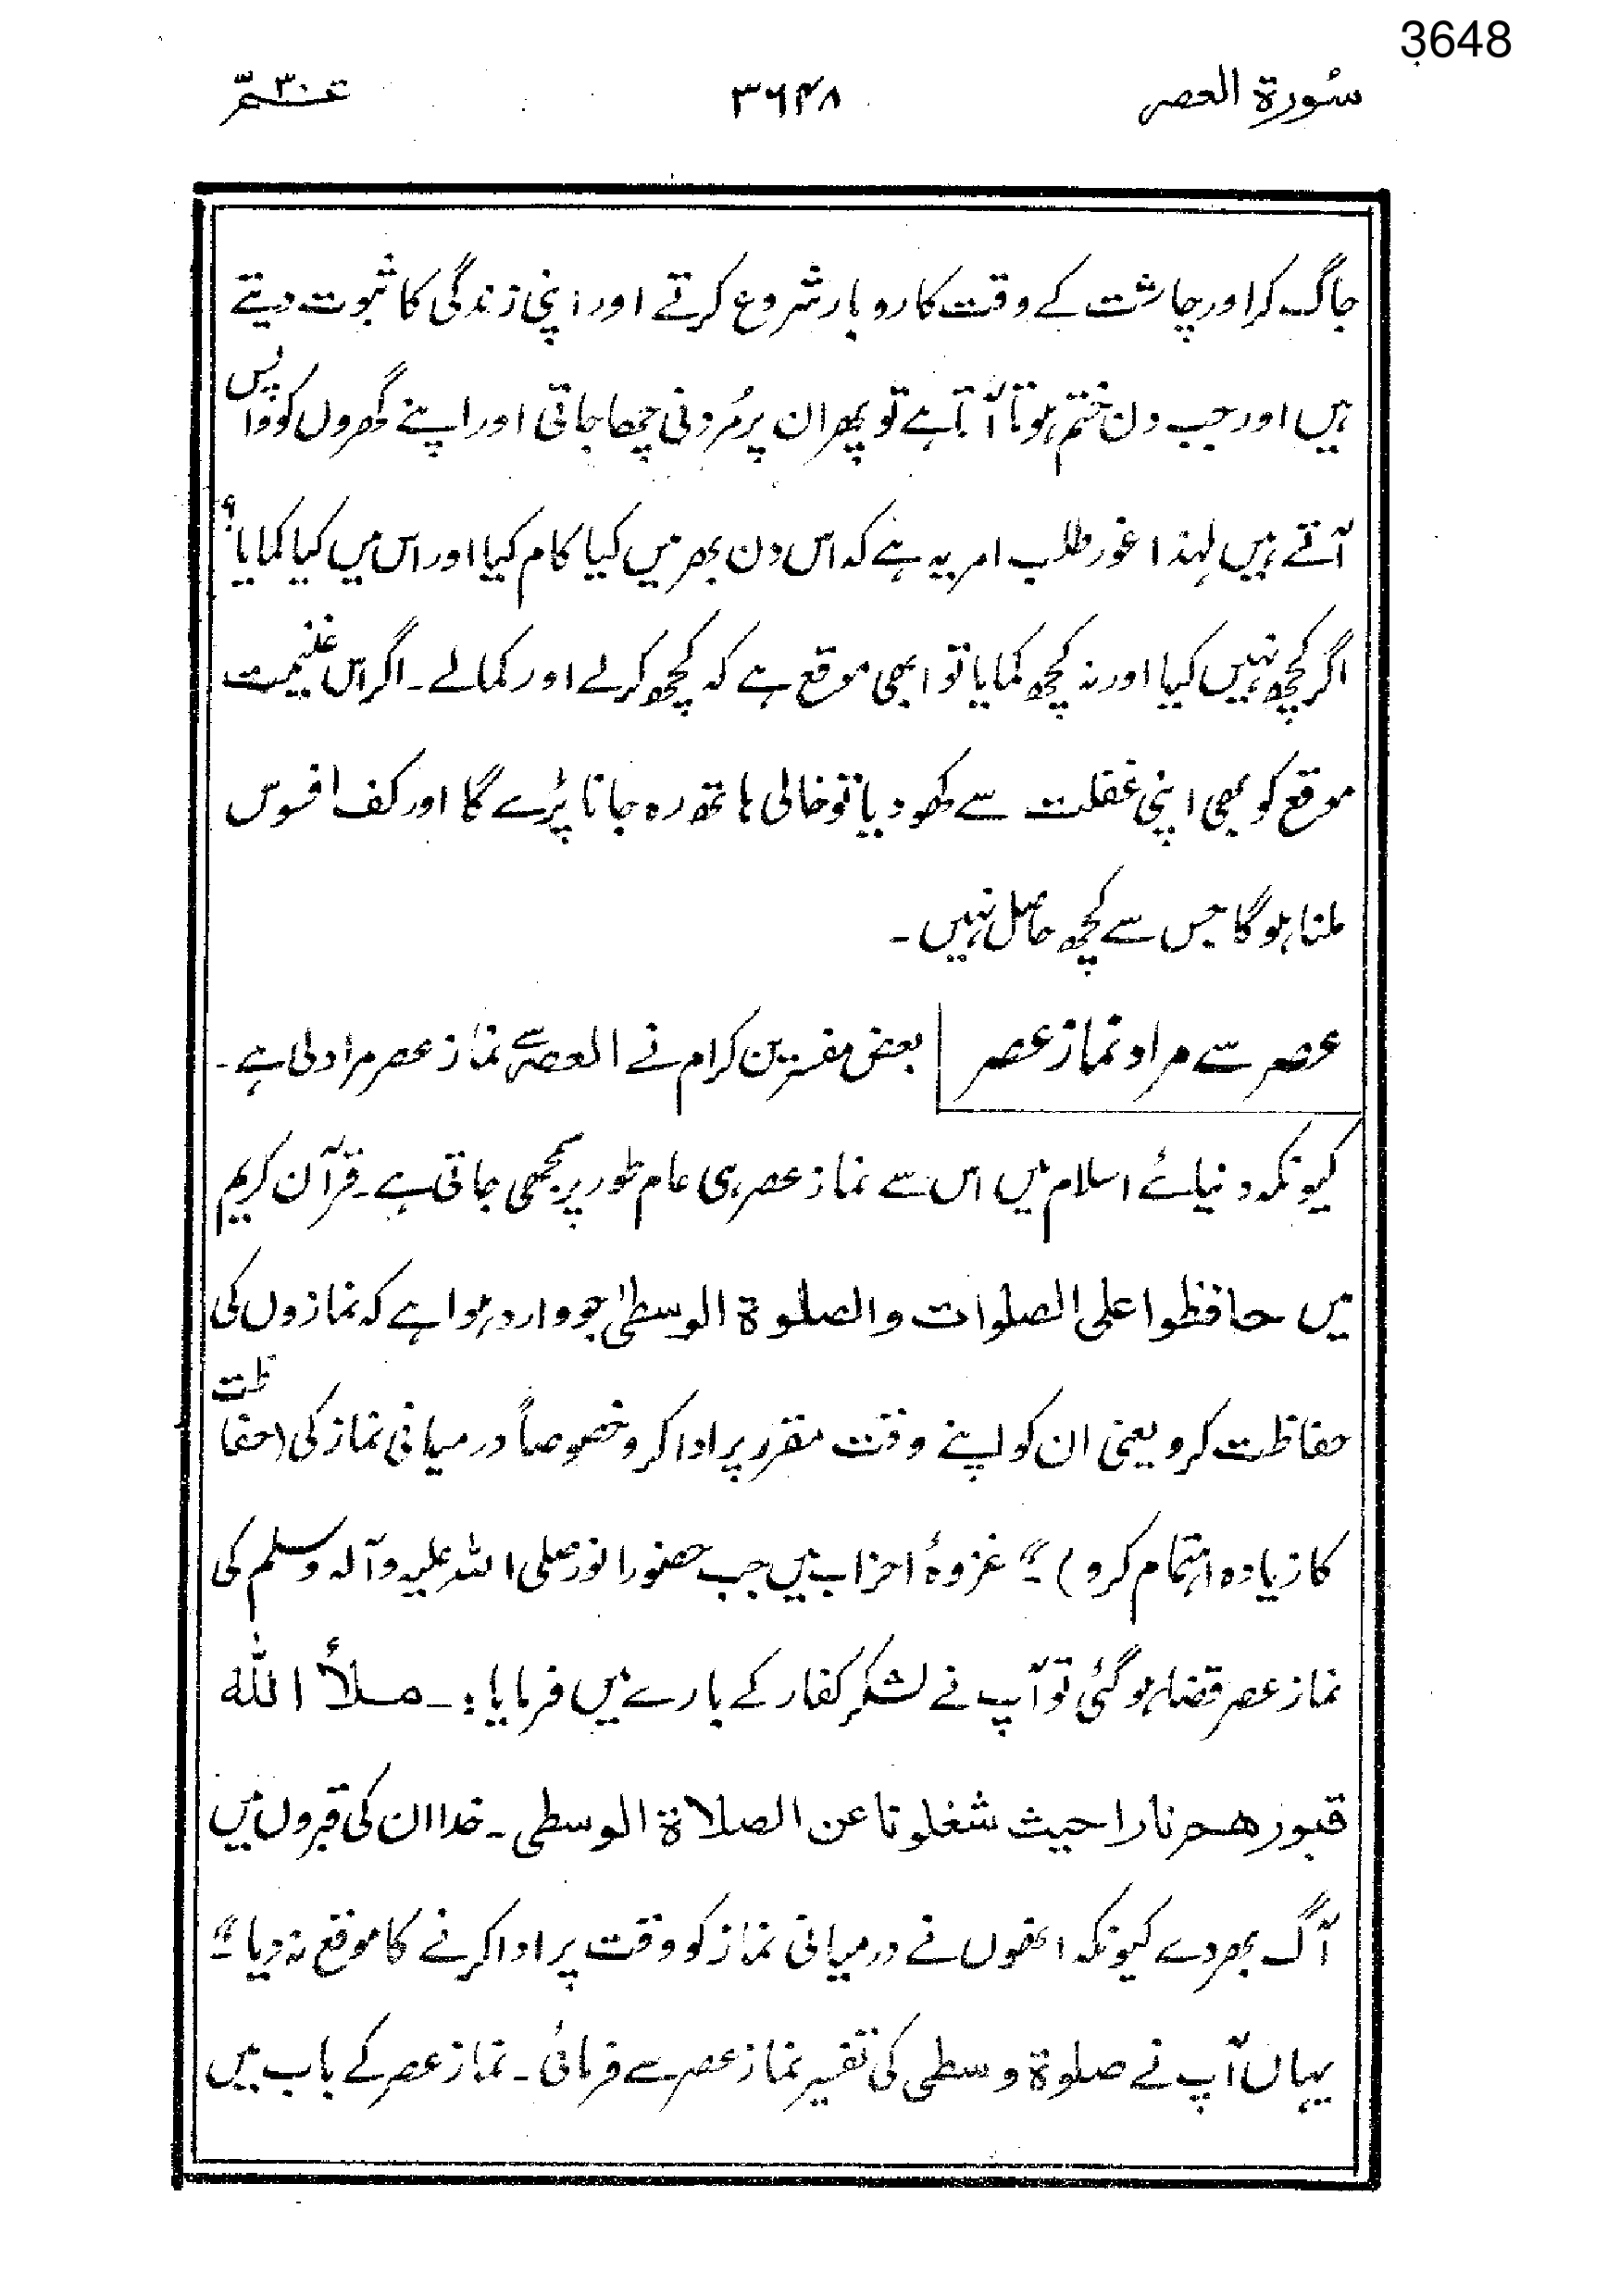 3648
سُورة العصر ۳۶۴۸ عـــم ۳۰
جاگ کر اور چاشت کے وقت کاروبار شروع کرتے اور اپنی زندگی کا ثبوت دیتے
ہیں اور جب دن ختم ہوتا آتا ہے تو پھر ان پر مُردنی چھا جاتی اور اپنے گھروں کو واپس
آتے ہیں لہٰذا غور طلب امر یہ ہے کہ اس دن بھر میں کیا کام کیا اور اس میں کیا کمایا؟
اگر کچھ نہیں کیا اور نہ کچھ کمایا تو ابھی موقع ہے کہ کچھ کر لے اور کما لے۔ اگر اس غنیمت
موقع کو بھی اپنی غفلت سے کھو دیا تو خالی ہاتھ رہ جانا پڑے گا اور کف افسوس
ملنا ہو گا جس سے کچھ حاصل نہیں۔
عصر سے مراد نماز عصر بعض مفسرین کرام نے العصر سے نماز عصر مراد لی ہے۔
کیونکہ دنیائے اسلام میں اس سے نماز عصر ہی عام طور پر سمجھی جاتی ہے۔ قرآن کریم
میں حافظوا علی الصلوات والصلوة الوسطیٰ جو وارد ہوا ہے کہ نمازوں کی
حفاظت کرو یعنی ان کو اپنے وقت مقرر پر ادا کرو خصوصاً درمیانی نماز کی (حفاظت
کا زیادہ اہتمام کرو)۔" غزوۂ احزاب میں جب حضور انور صلی اللہ علیہ وآلہ وسلم کی
نماز عصر قضا ہو گئی تو آپ نے لشکر کفار کے بارے میں فرمایا:۔ مــلأ الله
قبورهـم نارا حیث شغلونا عن الصلاة الوسطی۔ خدا ان کی قبروں میں
آگ بھر دے کیونکہ انھوں نے درمیانی نماز کو وقت پر ادا کرنے کا موقع نہ دیا۔"
یہاں آپ نے صلوة وسطی کی تفسیر نماز عصر سے فرمائی۔ نماز عصر کے باب میں